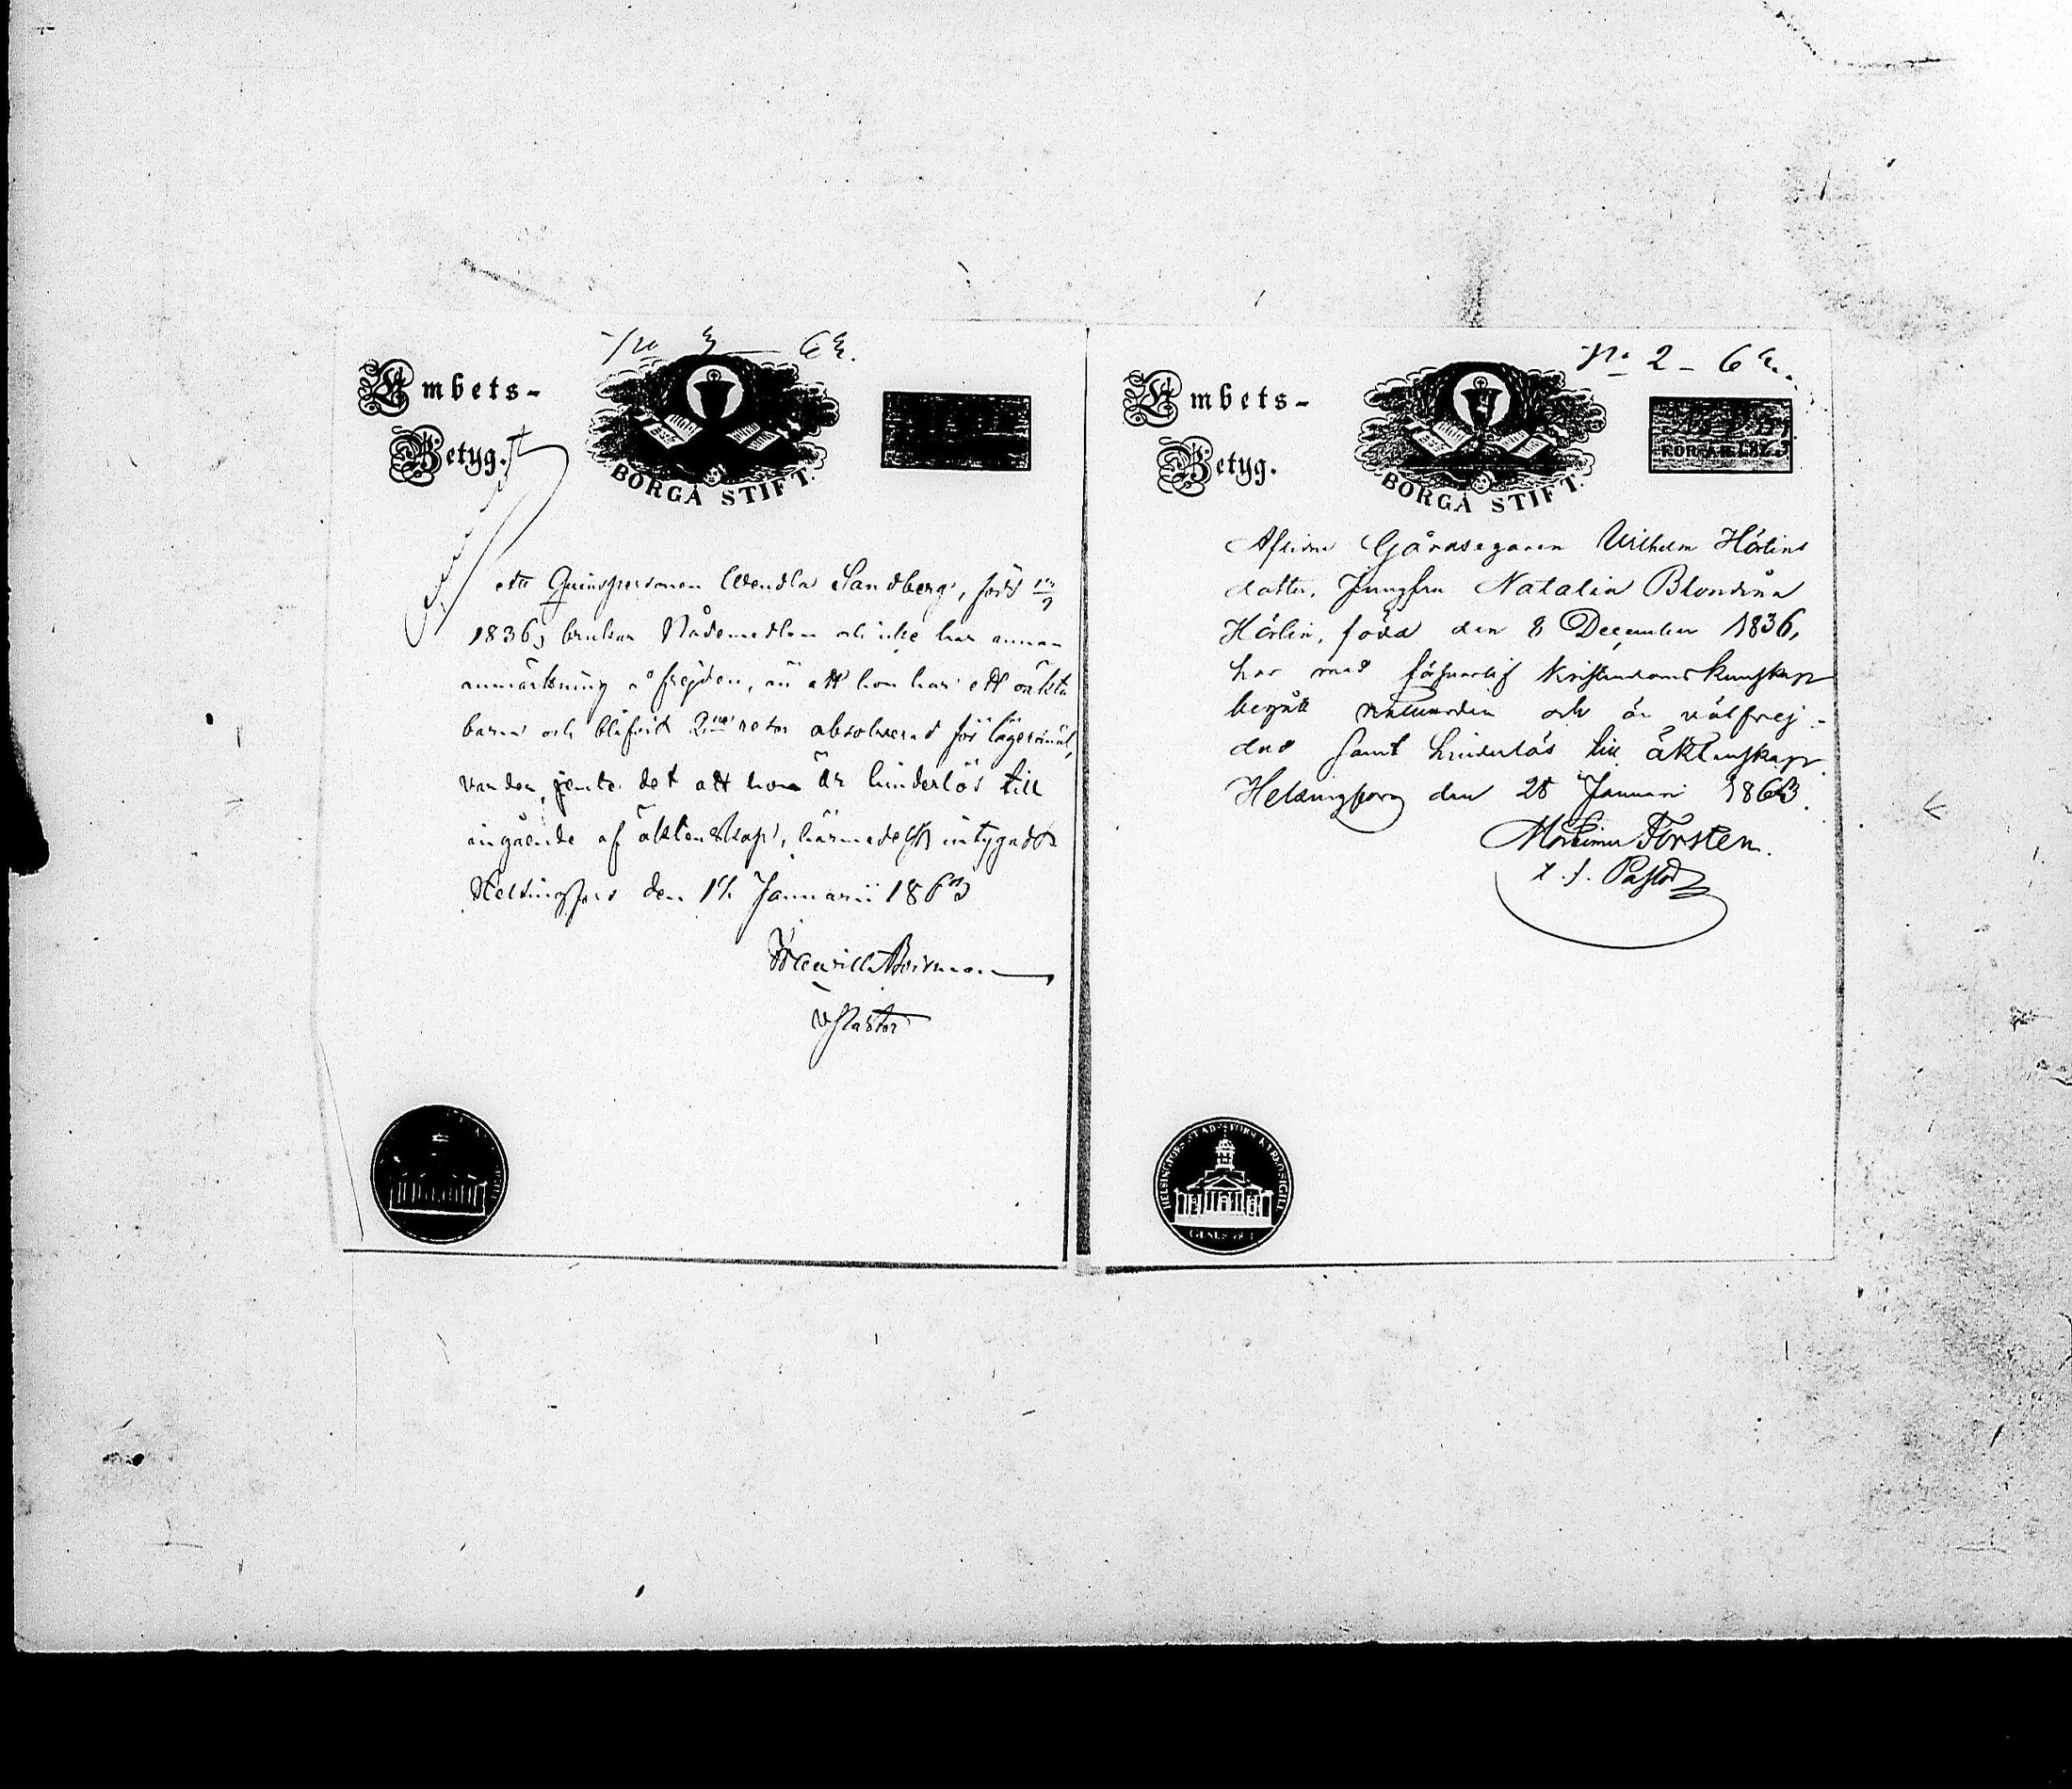 No 3 — 63.
Embets-
Betyg.
BORGÅ STIFT.
Att Qvinspersonen Wendla Sandberg, född
1836, brukar Nådemedlen och icke har annan
anmärkning å frejden, än att hon har ett oäkta
barn och blifvit 2ne resor absolverad för lägersmål,
varder, jemte det att hon är hinderlös till
ingående af äktenskap, härmedelst intygadt.
Helsingfors den Januarii 1863
v Pastor
No 2 — 63.
Embets-
Betyg.
BORGÅ STIFT.
Aflidne Gårdsegaren Wilhelm Hörlins
dotter, Jungfru Natalia Blondina
Hörlin, född den 8 December 1836,
har med försvarlig Kristendoms Kunskap
begått nattvarden och är välfrej-
dad samt hinderlös till äktenskap.
Helsingfors den 28 Januari 1863.
Forsten.
t. f. Pastor
HELSINGFORS STADSFÖRS. KYRKOSIGILL